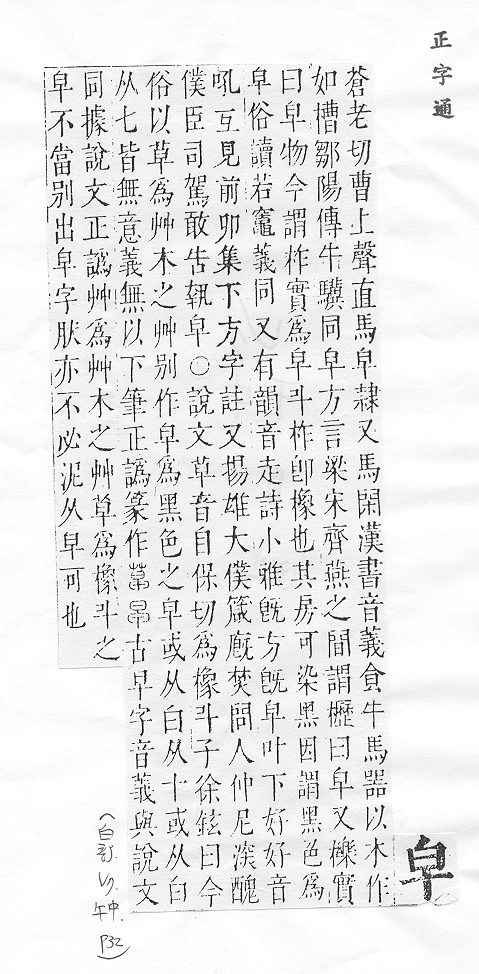 正字通
皁
蒼老切曹上聲直馬皁隸又馬閑漢書音義食牛馬器以木作
如槽鄒陽傳牛驥同皁方言梁宋齊燕之間謂櫪曰皁又櫟實
曰皁物今謂柞實爲皁斗柞卽橡也其房可染黑因謂黑色爲
皁俗讀若竈義同又有韻音走詩小雅旣方旣皁叶下好好音
吼互見前卯集下方字註又揚雄大僕箴廐焚問人仲尼深醜
僕臣司駕敢告執皁〇說文草音自保切爲橡斗子徐鉉曰今
俗以草爲艸木之艸别作皁爲黑色之皁或从白从十或从白
从七皆無意義無以下筆正譌篆作古早字音義與說文
同據說文正譌艸爲艸木之艸草爲橡斗之
皁不當别出皁字肰亦不必泥从皁可也
(白部 午中 P32)